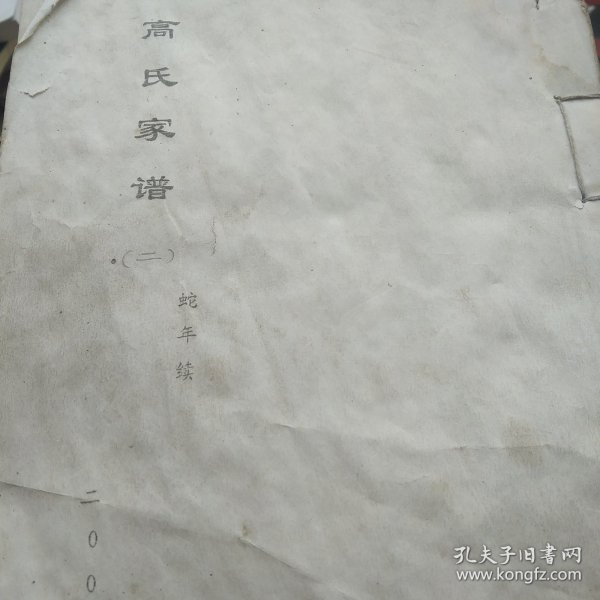 高氏家谱
(二)
蛇年续
二00
孔夫子旧书网
www.kongfz.com